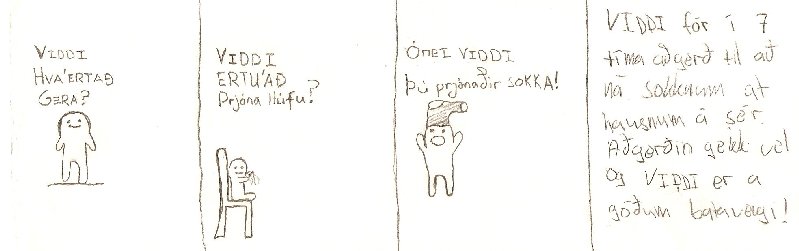 VIDDI
HVA'ERTAÐ
GERA?
VIDDI
ERTU'AÐ
Prjóna Húfu?
ÓNEI VIDDI
Þú prjónaðir SOKKA!
VIDDI fór í 7
tíma aðgerð til að
ná sokknum af
hausnum á sér.
Aðgerðin gekk vel
og VIDDI er á
góðum batavegi!